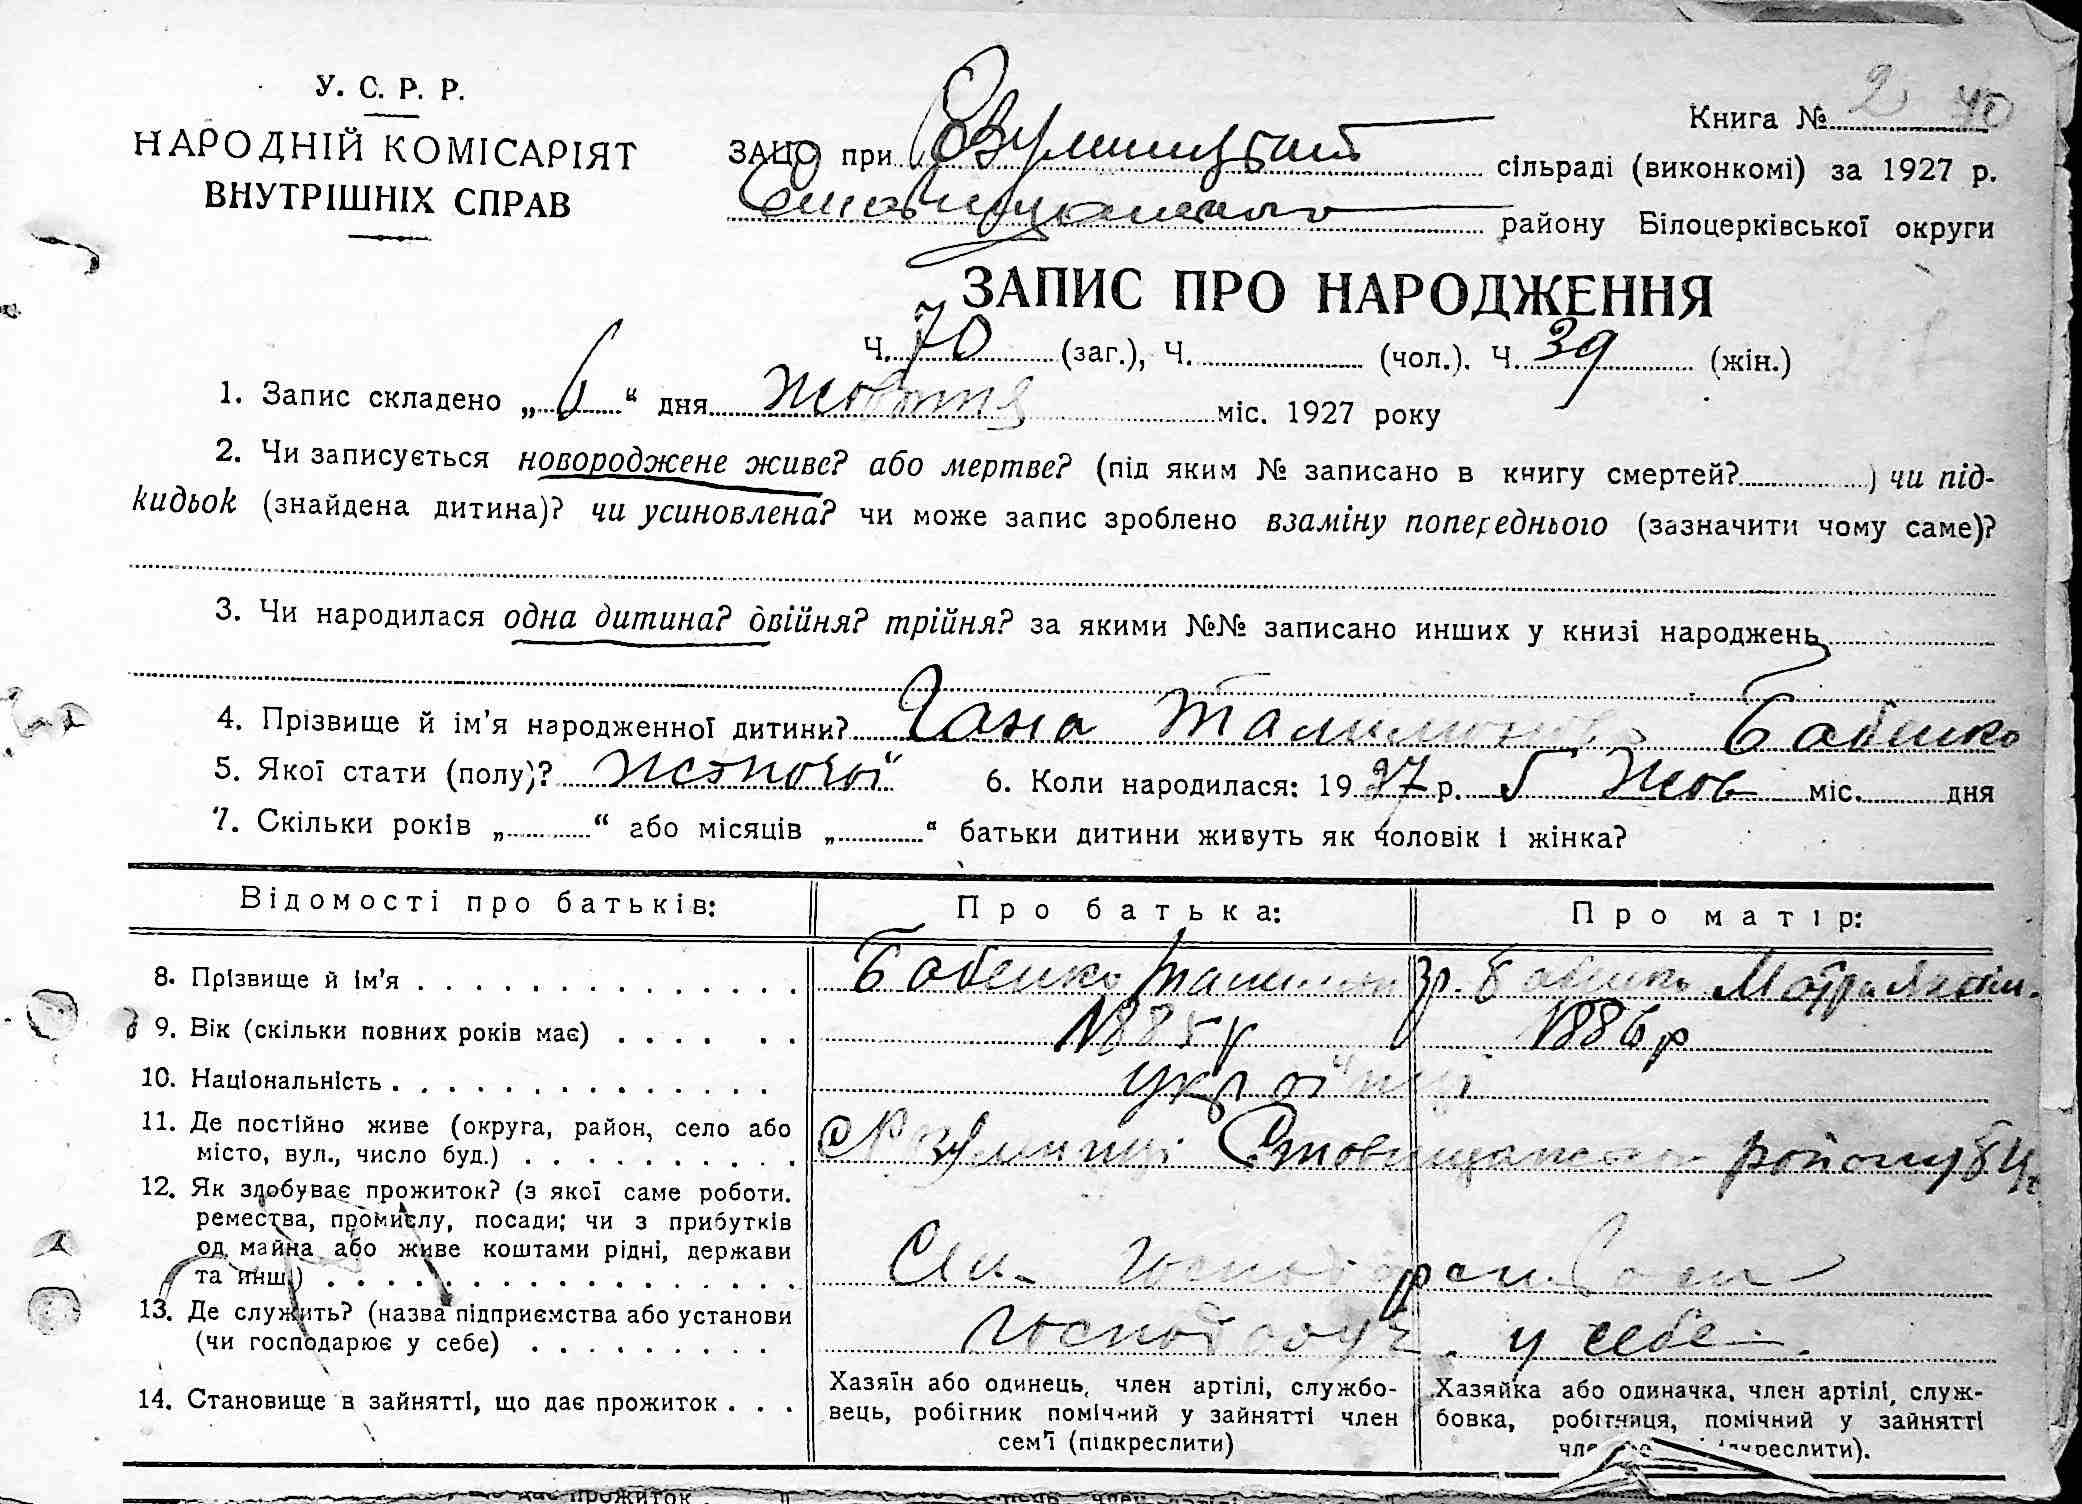 У. С. Р. Р.
НАРОДНІЙ КОМІСАРІЯТ
ВНУТРІШНІХ СПРАВ
Книга № 2 40
ЗАЦС при Розумницькій сільраді (виконкомі) за 1927 р.
Ставищанського району Білоцерківської округи
ЗАПИС ПРО НАРОДЖЕННЯ
Ч. 70 (заг.), Ч. (чол.). Ч. 39 (жін.)
1. Запис складено „6“ дня жовтня міс. 1927 року
2. Чи записується новороджене живе? або мертве? (під яким № записано в книгу смертей? ) чи під-
кидьок (знайдена дитина)? чи усиновлена? чи може запис зроблено взаміну попереднього (зазначити чому саме)?
3. Чи народилася одна дитина? двійня? трійня? за якими №№ записано инших у книзі народжень
4. Прізвище й ім’я народженної дитини? Гана Талимонова Бабенко
5. Якої стати (полу)? жіночої 6. Коли народилася: 1927 р. 5 Жов міс. дня
7. Скільки років „ “ або місяців „ “ батьки дитини живуть як чоловік і жінка?
Відомості про батьків: Про батька: Про матір:
8. Прізвище й ім’я Бабенко Талимон Гр. Бабенко Мотря Яким.
9. Вік (скільки повних років має) 1885 р 1886 р
10. Національність українці
11. Де постійно живе (округа, район, село або
місто, вул., число буд.) с Розумниці Ставищанськ району БЦ
12. Як здобуває прожиток? (з якої саме роботи.
ремества, промислу, посади; чи з прибутків
од майна або живе коштами рідні, держави
та инш.) Сіл. господарси
13. Де служить? (назва підприємства або установи
(чи господарює у себе) господарує у себе.
14. Становище в зайнятті, що дає прожиток
Хазяїн або одинець, член артілі, службо-
вець, робігник помічний у зайнятті член
сем’ї (підкреслити)
Хазяйка або одиначка, член артілі, служ-
бовка, робітниця, помічний у зайнятті